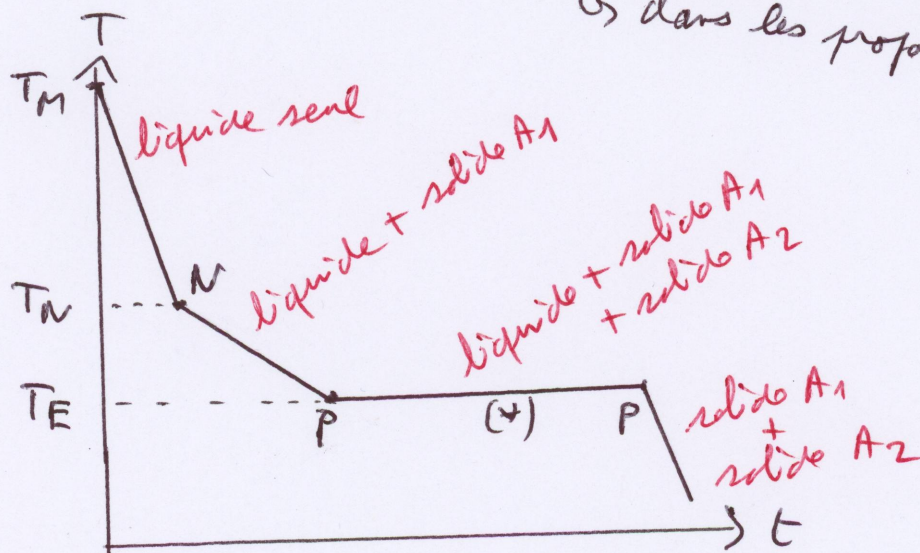 ↳ dans les propo
T
T_M
liquide seul
liquide + solide A1
T_N
N
liquide + solide A1
+ solide A2
T_E
P
(*)
P
solide A1
+
solide A2
t